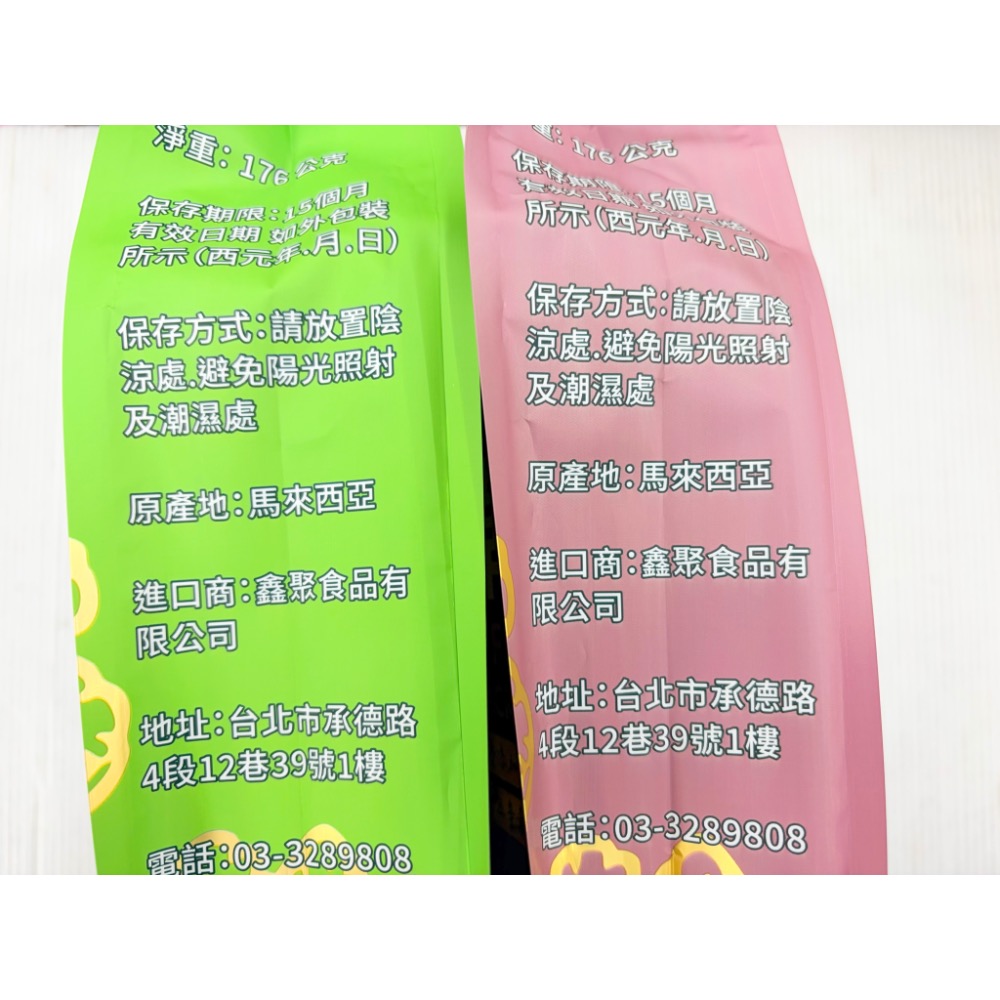 淨重：176 公克
保存期限：15個月
有效日期 如外包裝
所示（西元年.月.日）
保存方式：請放置陰
涼處.避免陽光照射
及潮濕處
原產地：馬來西亞
進口商：鑫聚食品有
限公司
地址：台北市承德路
4段12巷39號1樓
電話：03-3289808
重：176 公克
保存期限
有效日期 15個月
所示（西元年.月.日）
保存方式：請放置陰
涼處.避免陽光照射
及潮濕處
原產地：馬來西亞
進口商：鑫聚食品有
限公司
地址：台北市承德路
4段12巷39號1樓
電話：03-3289808